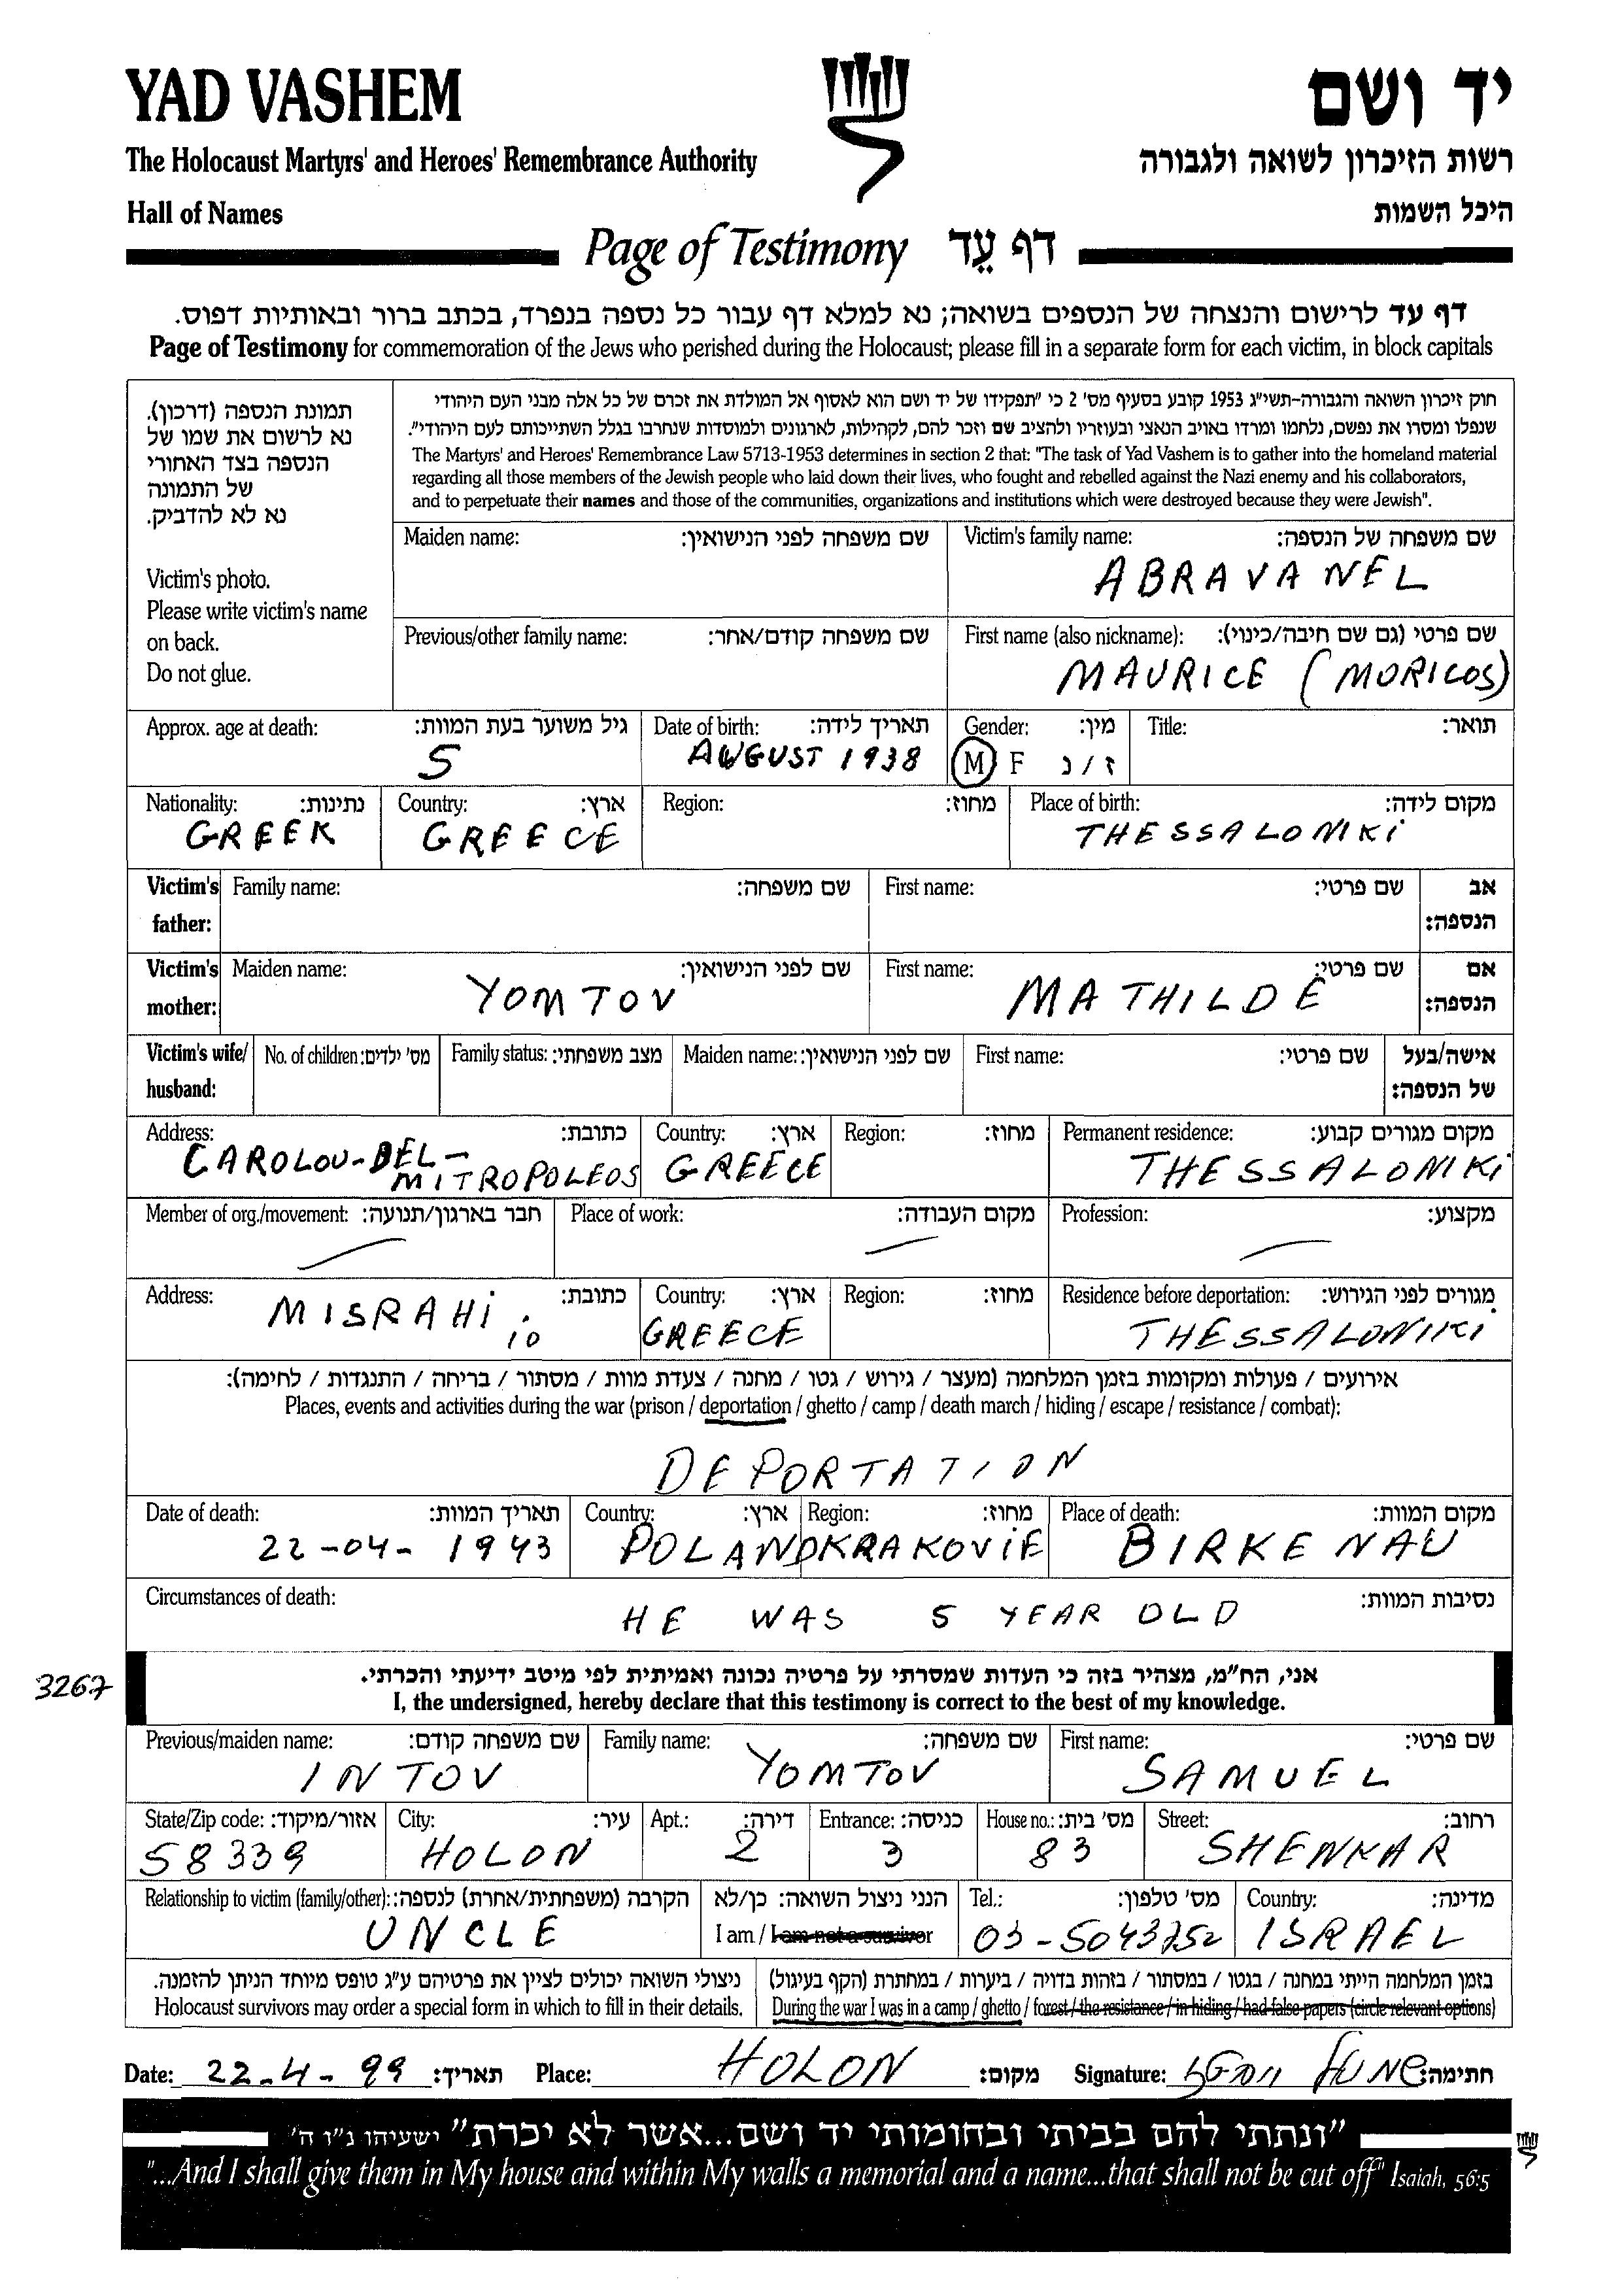 YAD VASHEM
יד ושם
The Holocaust Martyrs' and Heroes' Remembrance Authority
רשות הזיכרון לשואה ולגבורה
Hall of Names
היכל השמות
Page of Testimony דף עֵד
דף עד לרישום והנצחה של הנספים בשואה; נא למלא דף עבור כל נספה בנפרד, בכתב ברור ובאותיות דפוס.
Page of Testimony for commemoration of the Jews who perished during the Holocaust; please fill in a separate form for each victim, in block capitals
תמונת הנספה (דרכון).
נא לרשום את שמו של
הנספה בצד האחורי
של התמונה
נא לא להדביק.
Victim's photo.
Please write victim's name
on back.
Do not glue.
חוק זיכרון השואה והגבורה-תשי"ג 1953 קובע בסעיף מס' 2 כי "תפקידו של יד ושם הוא לאסוף אל המולדת את זכרם של כל אלה מבני העם היהודי
שנפלו ומסרו את נפשם, נלחמו ומרדו באויב הנאצי ובעוזריו ולהציב שם וזכר להם, לקהילות, לארגונים ולמוסדות שנחרבו בגלל השתייכותם לעם היהודי".
The Martyrs' and Heroes' Remembrance Law 5713-1953 determines in section 2 that: "The task of Yad Vashem is to gather into the homeland material
regarding all those members of the Jewish people who laid down their lives, who fought and rebelled against the Nazi enemy and his collaborators,
and to perpetuate their names and those of the communities, organizations and institutions which were destroyed because they were Jewish".
Maiden name: שם משפחה לפני הנישואין:
Victim's family name: שם משפחה של הנספה:
ABRAVANEL
Previous/other family name: שם משפחה קודם/אחר:
First name (also nickname): שם פרטי (גם שם חיבה/כינוי):
MAURICE (MORICOS)
Approx. age at death: גיל משוער בעת המוות:
5
Date of birth: תאריך לידה:
AUGUST 1938
Gender: מין:
M F ז / נ
Title: תואר:
Nationality: נתינות:
GREEK
Country: ארץ:
GREECE
Region: מחוז:
Place of birth: מקום לידה:
THESSALONIKI
Victim's father: Family name: שם משפחה: First name: שם פרטי: אב הנספה:
Victim's mother: Maiden name: שם לפני הנישואין:
YOMTOV
First name: שם פרטי: אם הנספה:
MATHILDE
Victim's wife/ husband: No. of children: מס' ילדים: Family status: מצב משפחתי: Maiden name: שם לפני הנישואין: First name: שם פרטי: אישה/בעל של הנספה:
Address: כתובת:
CAROLOU-DEL-
MITROPOLEOS
Country: ארץ:
GREECE
Region: מחוז:
Permanent residence: מקום מגורים קבוע:
THESSALONIKI
Member of org./movement: חבר בארגון/תנועה: Place of work: מקום העבודה: Profession: מקצוע:
Address: כתובת:
MISRAHI 10
Country: ארץ:
GREECE
Region: מחוז:
Residence before deportation: מגורים לפני הגירוש:
THESSALONIKI
אירועים / פעולות ומקומות בזמן המלחמה (מעצר / גירוש / גטו / מחנה / צעדת מוות / מסתור / בריחה / התנגדות / לחימה):
Places, events and activities during the war (prison / deportation / ghetto / camp / death march / hiding / escape / resistance / combat):
DEPORTATION
Date of death: תאריך המוות:
22-04-1943
Country: ארץ:
POLAND
Region: מחוז:
KRAKOVIE
Place of death: מקום המוות:
BIRKENAU
Circumstances of death: נסיבות המוות:
HE WAS 5 YEAR OLD
3267
אני, הח"מ, מצהיר בזה כי העדות שמסרתי על פרטיה נכונה ואמיתית לפי מיטב ידיעתי והכרתי.
I, the undersigned, hereby declare that this testimony is correct to the best of my knowledge.
Previous/maiden name: שם משפחה קודם:
INTOV
Family name: שם משפחה:
YOMTOV
First name: שם פרטי:
SAMUEL
State/Zip code: אזור/מיקוד:
58339
City: עיר:
HOLON
Apt.: דירה:
2
Entrance: כניסה:
3
House no.: מס' בית:
83
Street: רחוב:
SHENKAR
Relationship to victim (family/other): הקרבה (משפחתית/אחרת) לנספה:
UNCLE
הנני ניצול השואה: כן/לא
I am / I am not a survivor
Tel.: מס' טלפון:
03-5043752
Country: מדינה:
ISRAEL
ניצולי השואה יכולים לציין את פרטיהם ע"ג טופס מיוחד הניתן להזמנה.
Holocaust survivors may order a special form in which to fill in their details.
בזמן המלחמה הייתי במחנה / בגטו / במסתור / בזהות בדויה / ביערות / במחתרת (הקף בעיגול)
During the war I was in a camp / ghetto / forest / the resistance / in hiding / had false papers (circle relevant options)
Date: 22-4-99 תאריך: Place: HOLON מקום: Signature: חתימה:
"ונתתי להם בביתי ובחומותי יד ושם...אשר לא יכרת" ישעיהו נ"ו ה'
"...And I shall give them in My house and within My walls a memorial and a name...that shall not be cut off" Isaiah, 56:5